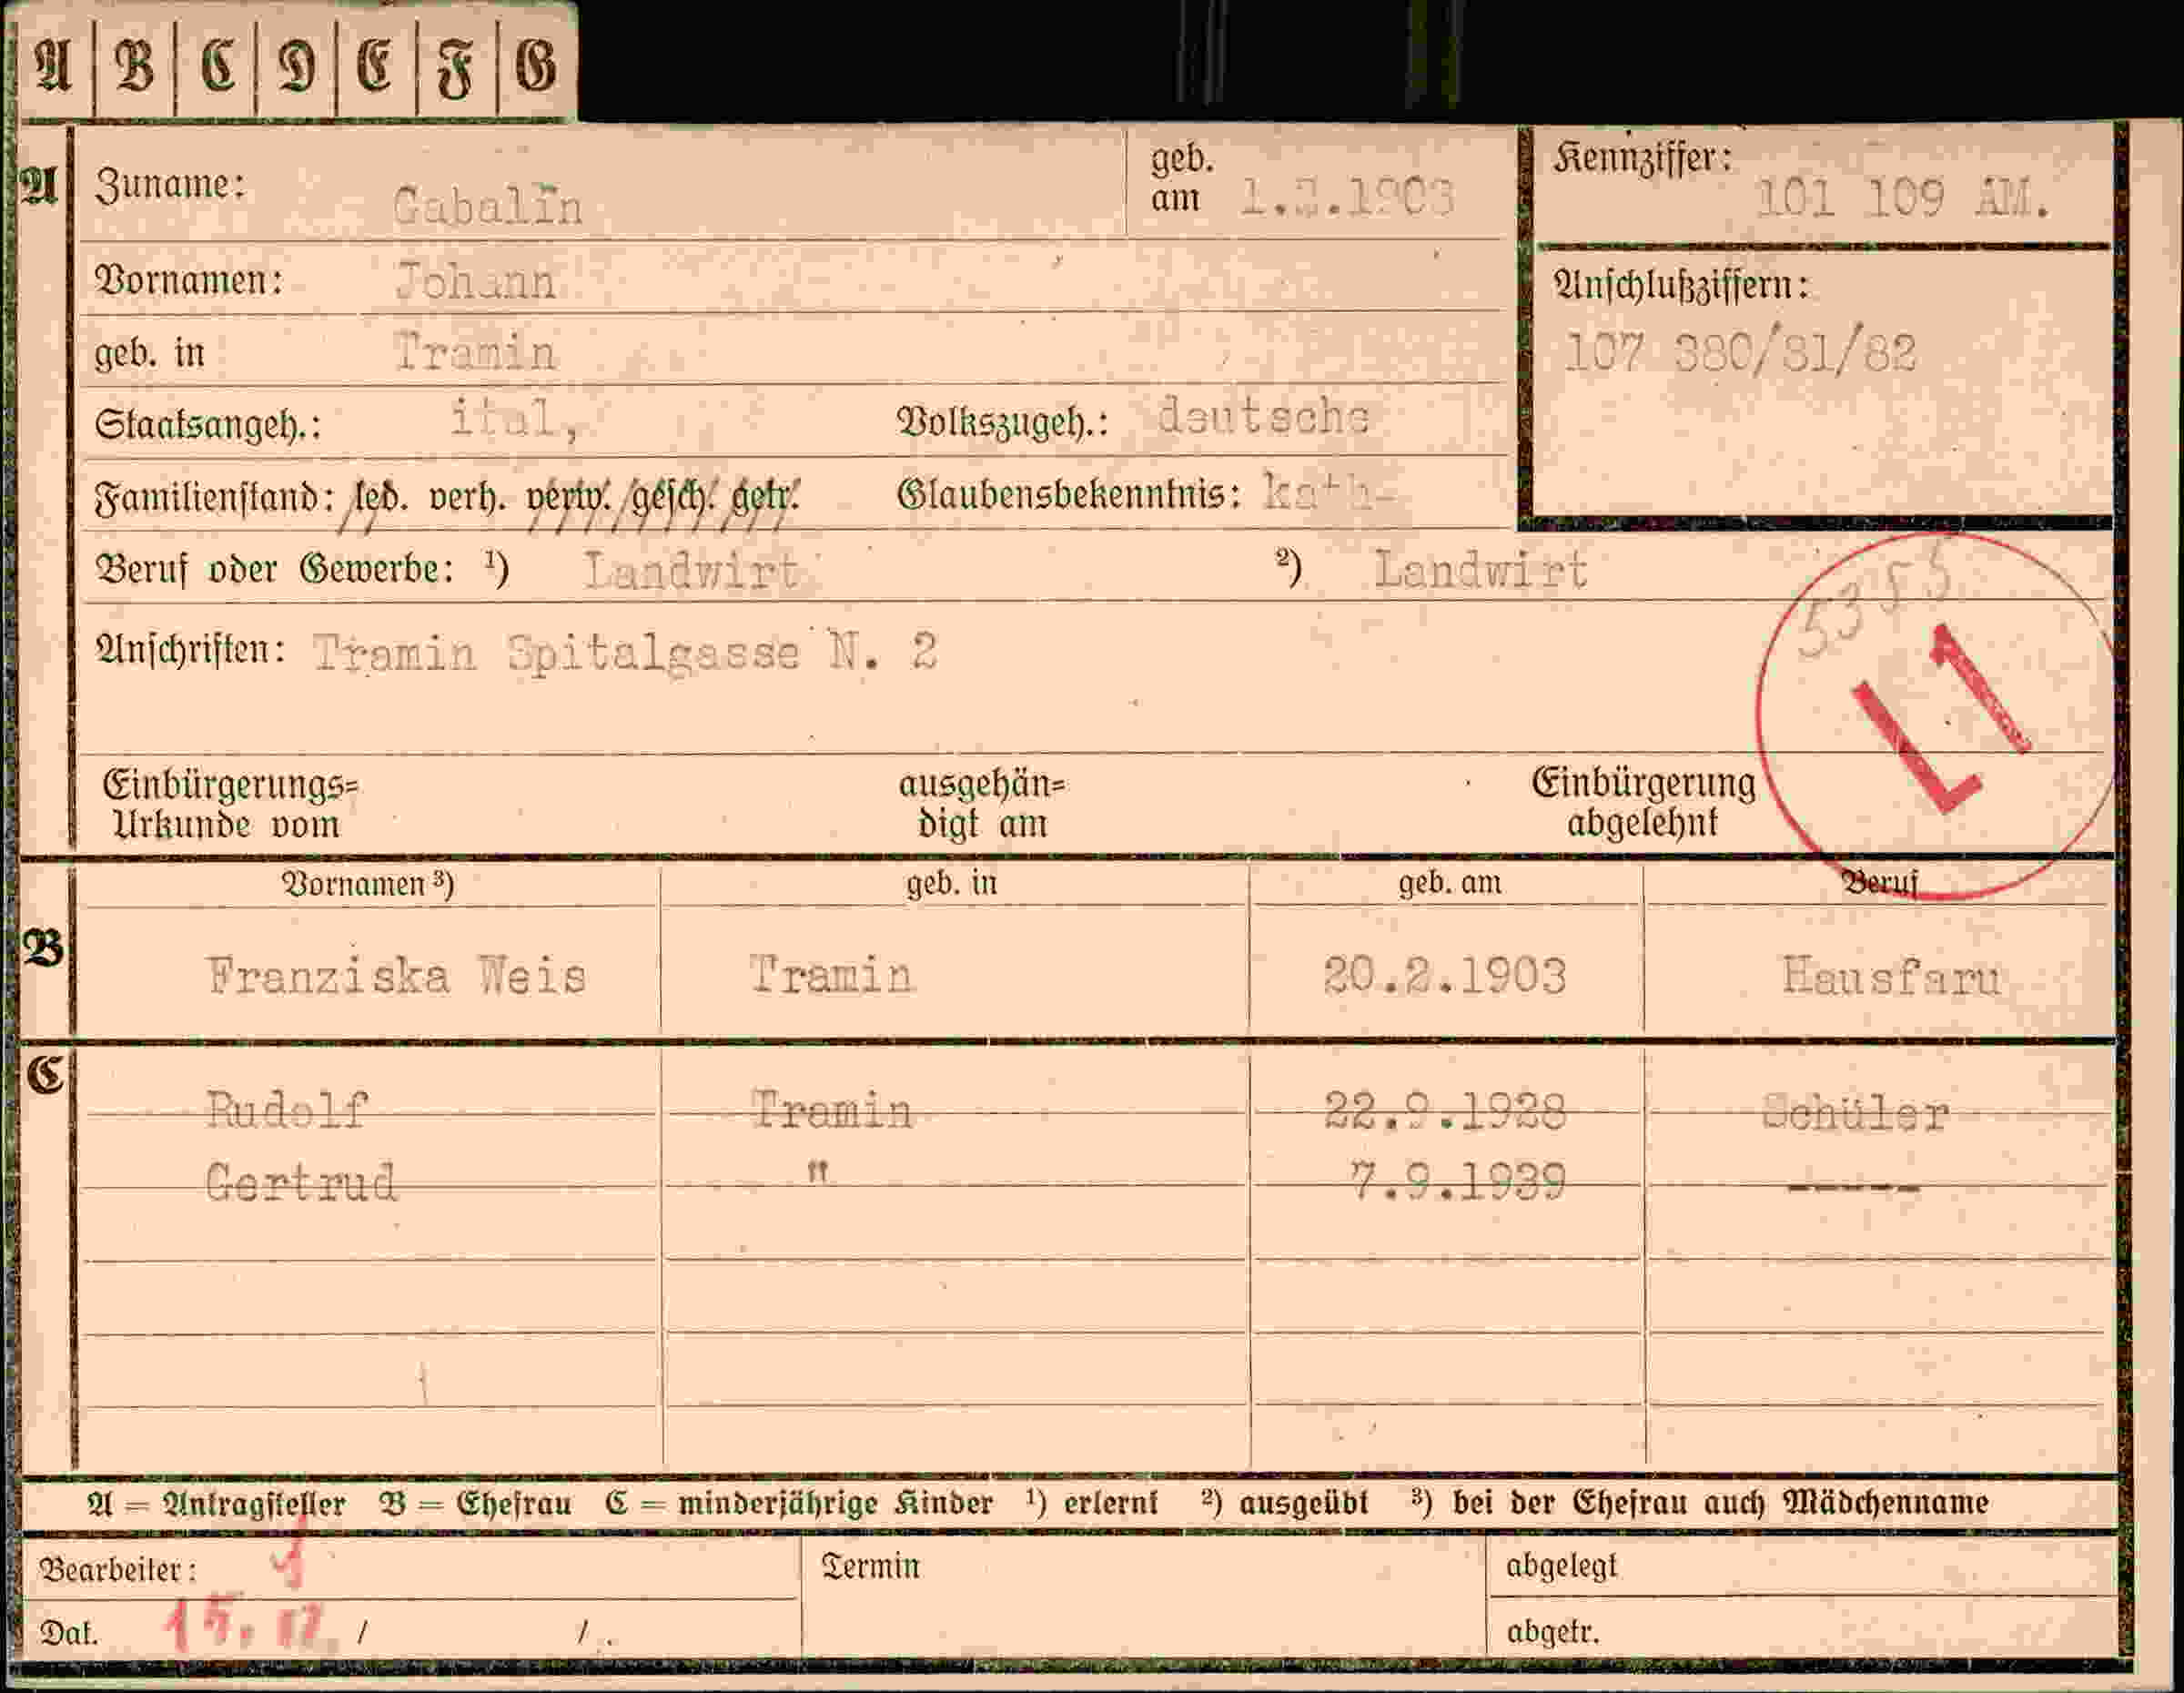 A B C D E F G
A Zuname: Gabalin geb. am 1.2.1903 Kennziffer: 101 109 AM.
Vornamen: Johann Anschlußziffern:
geb. in Tramin 107 380/81/82
Staatsangeh.: ital, Volkszugeh.: deutsche
Familienstand: led. verh. verw. gesch. getr. Glaubensbekenntnis: kath-
Beruf oder Gewerbe: ¹) Landwirt ²) Landwirt
5355
Anschriften: Tramin Spitalgasse N. 2
L1
Einbürgerungs= ausgehän= Einbürgerung
Urkunde vom digt am abgelehnt
Vornamen ³) geb. in geb. am Beruf
B Franziska Weis Tramin 20.2.1903 Hausfaru
C Rudolf Tramin 22.9.1928 Schüler
Gertrud " 7.9.1939 -----
A = Antragsteller B = Ehefrau C = minderjährige Kinder ¹) erlernt ²) ausgeübt ³) bei der Ehefrau auch Mädchenname
Bearbeiter: Termin abgelegt
Dat. 15. 12 / / . abgetr.